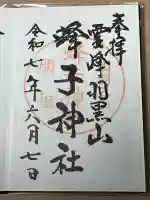 奉拝
霊峰羽黒山
蜂子神社
令和七年六月七日